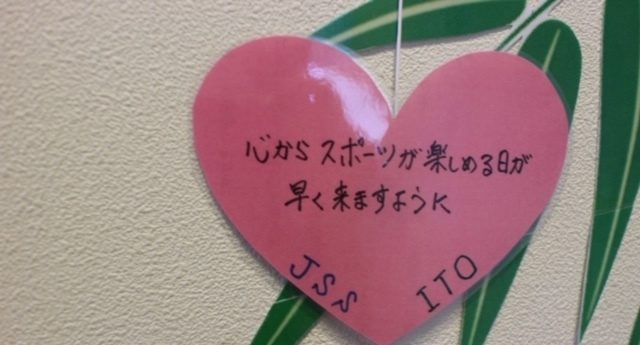 心からスポーツが楽しめる日が
早く来ますように
JSS
ITO